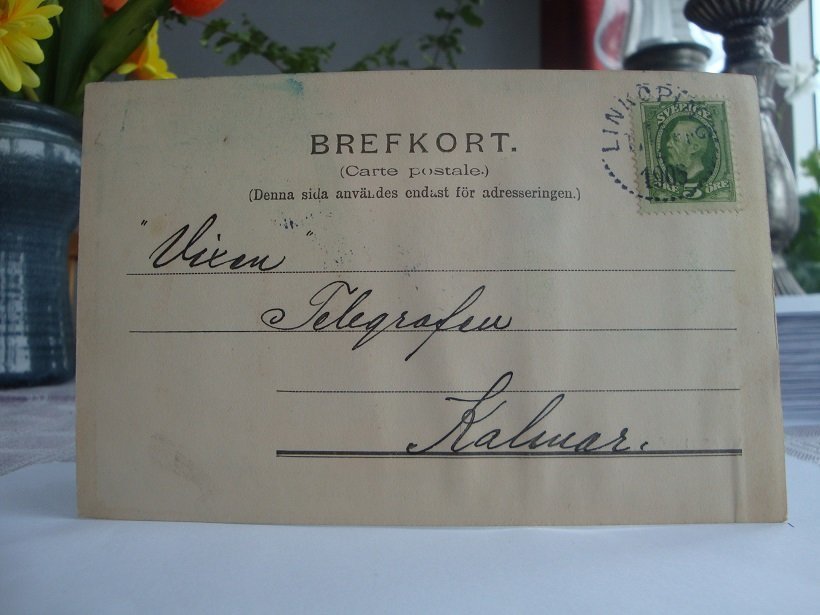 BREFKORT.
(Carte postale.)
(Denna sida användes endast för adresseringen.)
LINKÖPING
SVERIGE
5 ÖRE
"Vixen"
Telegrafen
Kalmar.